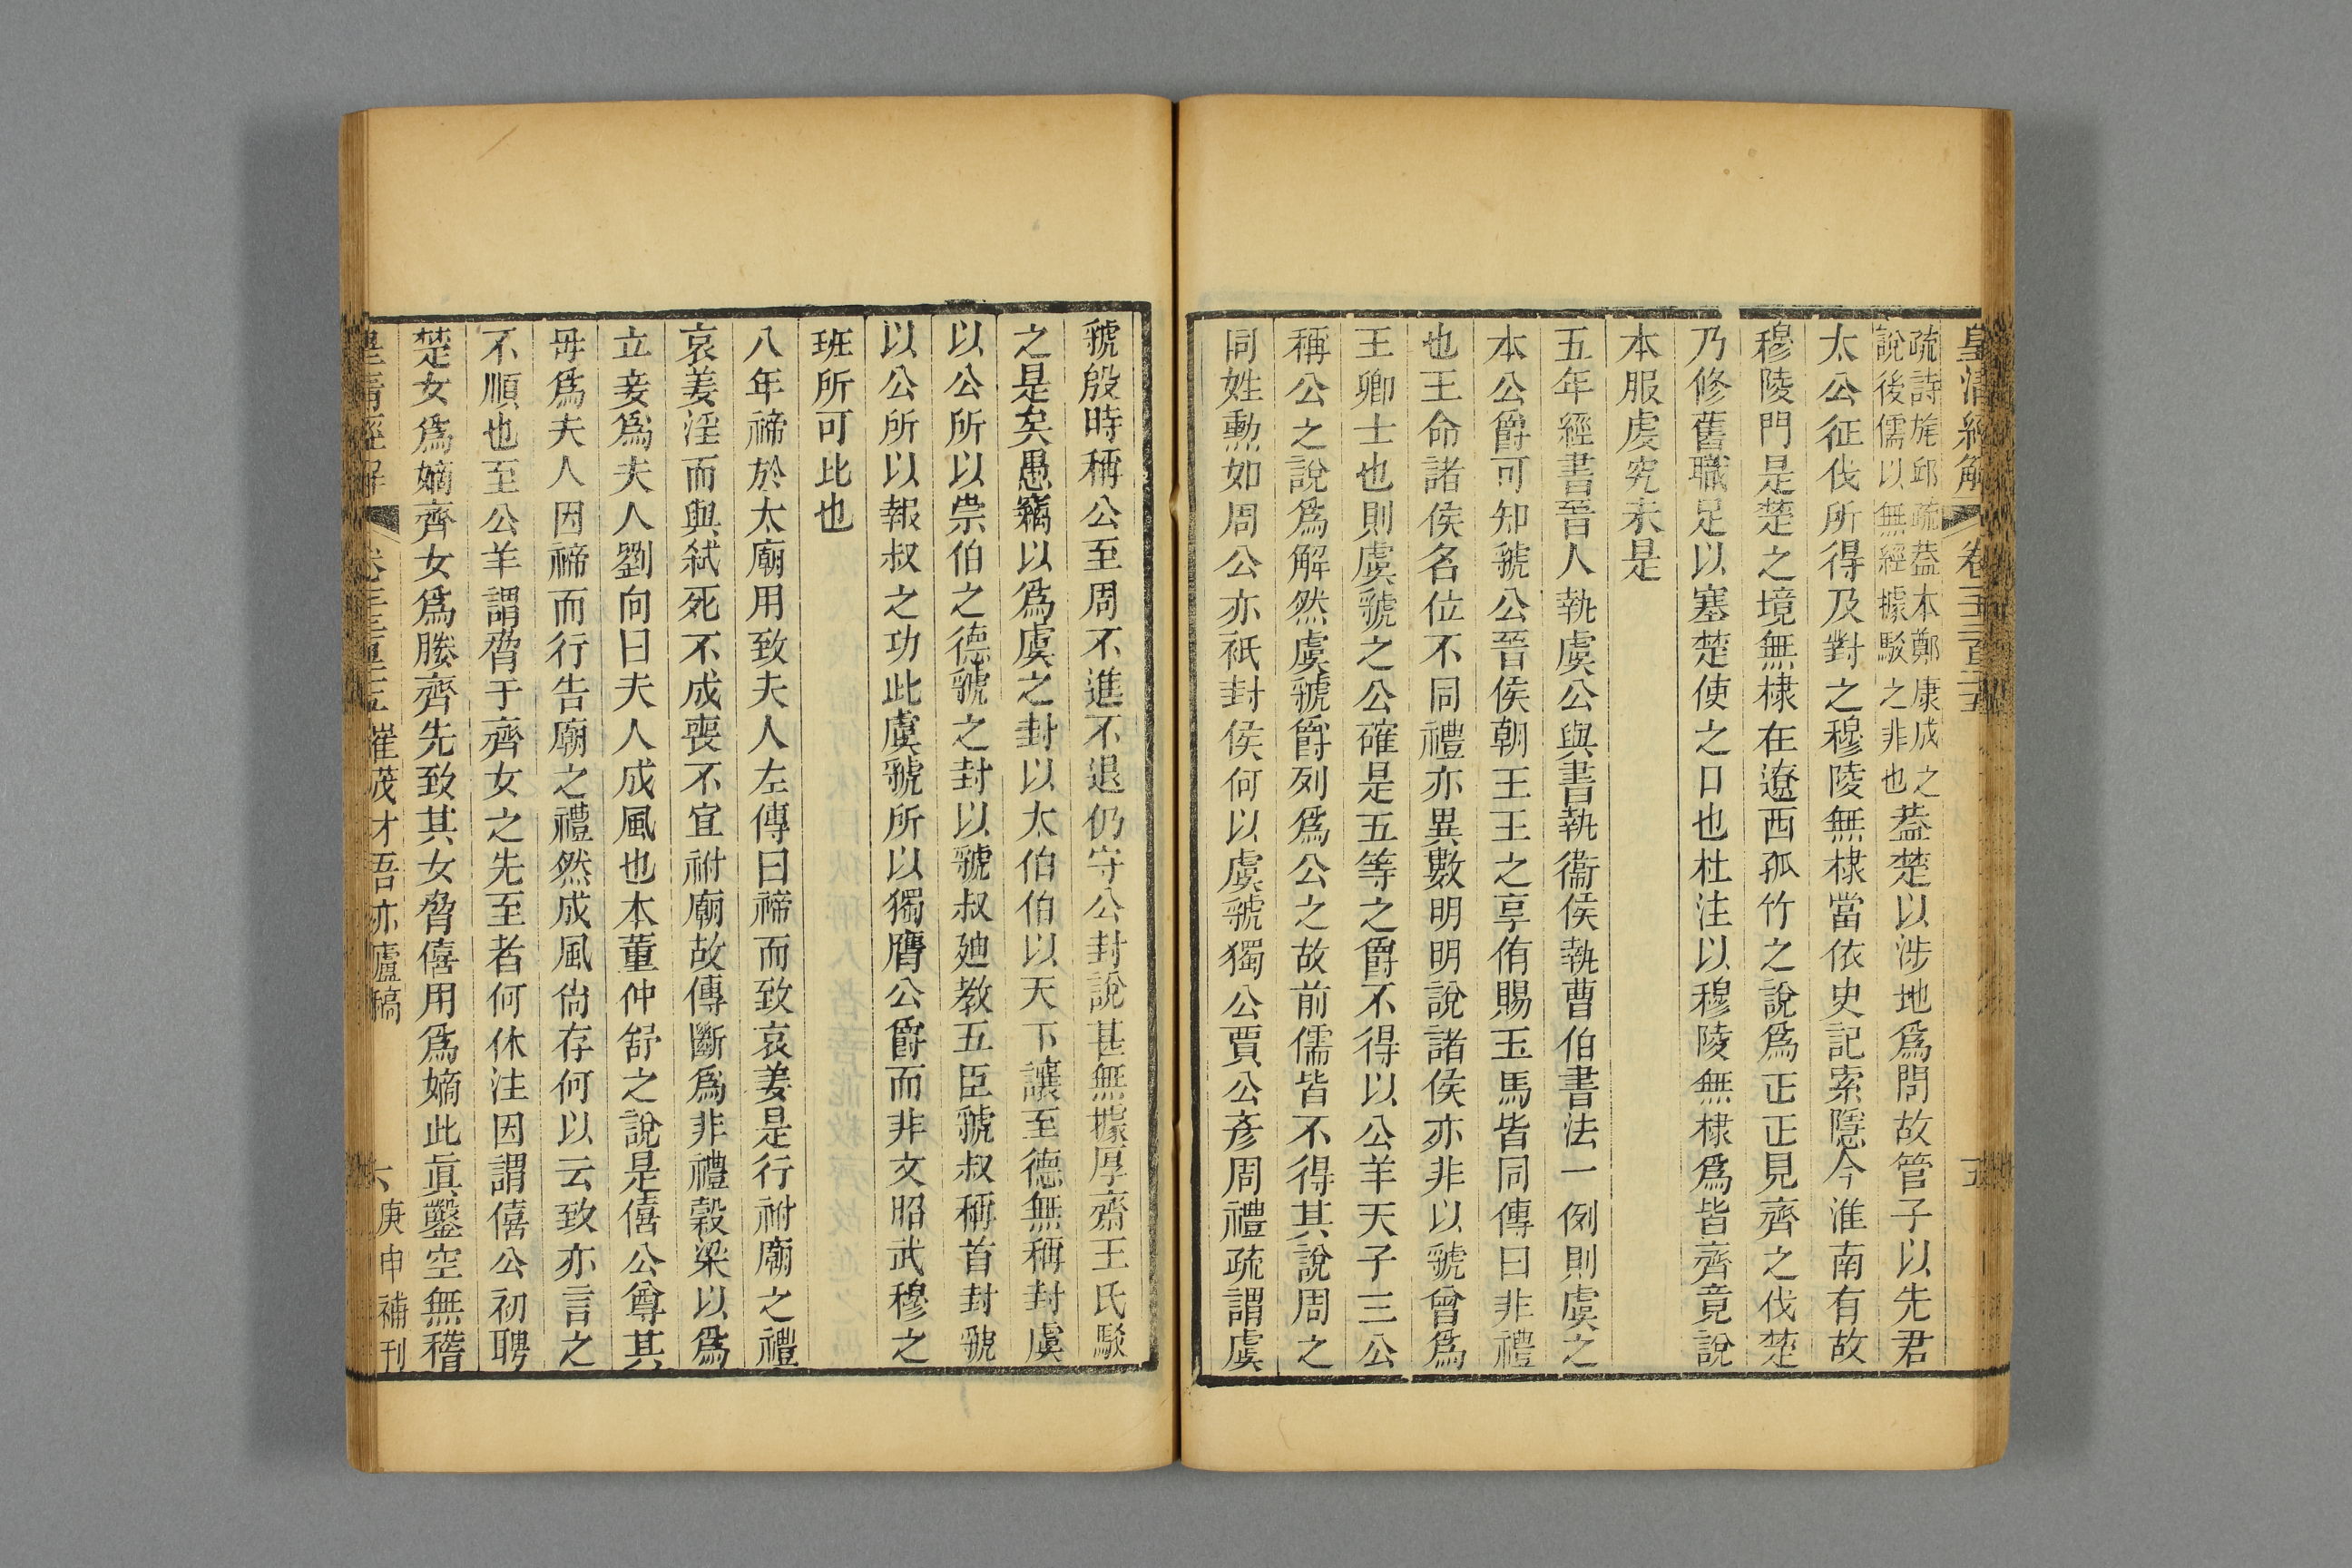 皇清經解
五
疏詩旄邱疏葢本鄭康成之
說後儒以無經據駁之非也
葢楚以涉地爲問故管子以先君
太公征伐所得及對之穆陵無棣當依史記索隱今淮南有故
穆陵門是楚之境無棣在遼西孤竹之說爲正正見齊之伐楚
乃修舊職足以塞楚使之口也杜注以穆陵無棣爲皆齊竟說
本服虔究未是
五年經書晉人執虞公與書執衞侯執曹伯書法一例則虞之
本公爵可知虢公晉侯朝王王之享侑賜玉馬皆同傳曰非禮
也王命諸侯名位不同禮亦異數明明說諸侯亦非以虢曾爲
王卿士也則虞虢之公確是五等之爵不得以公羊天子三公
稱公之說爲解然虞虢爵列爲公之故前儒皆不得其說周之
同姓勲如周公亦袛封侯何以虞虢獨公賈公彥周禮疏謂虞
虢殷時稱公至周不進不退仍守公封說甚無據厚齋王氏駁
之是矣愚竊以爲虞之封以太伯伯以天下讓至德無稱封虞
以公所以崇伯之德虢之封以虢叔廸教五臣虢叔稱首封虢
以公所以報叔之功此虞虢所以獨膺公爵而非文昭武穆之
班所可比也
八年禘於太廟用致夫人左傳曰禘而致哀姜是行祔廟之禮
哀姜淫而與弑死不成喪不宜祔廟故傳斷爲非禮穀梁以爲
立妾爲夫人劉向曰夫人成風也本董仲舒之說是僖公尊其
毋爲夫人因禘而行告廟之禮然成風尙存何以云致亦言之
不順也至公羊謂脅于齊女之先至者何休注因謂僖公初聘
楚女爲嫡齊女爲媵齊先致其女脅僖用爲嫡此眞鑿空無稽
皇清經解
崔茂才吾亦廬稿
六
庚申補刊